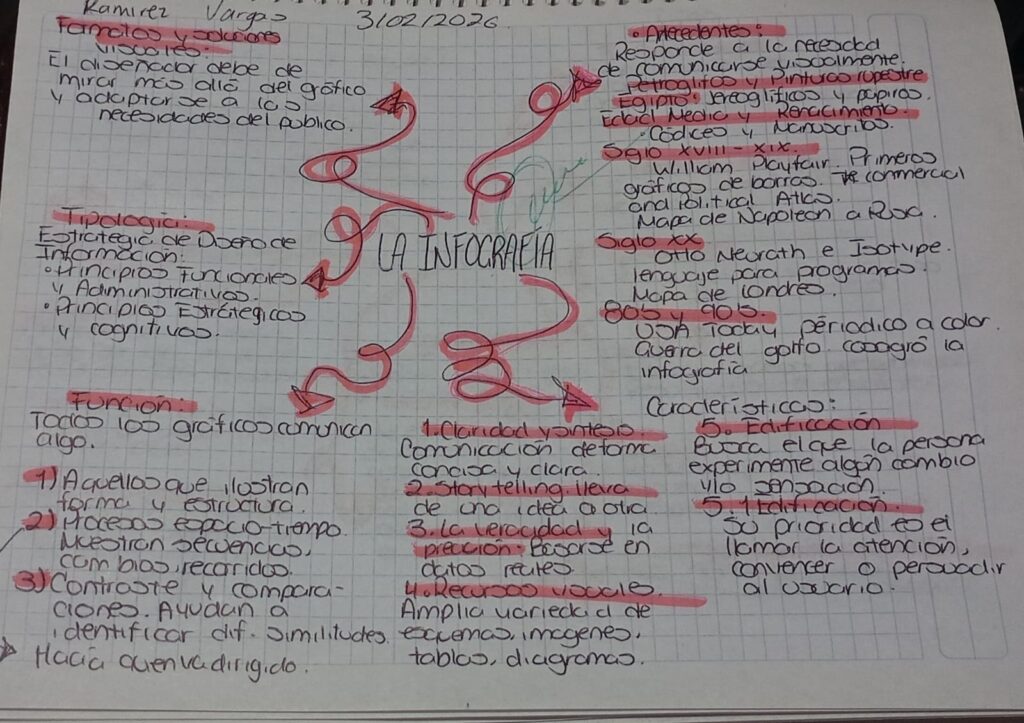 Ramirez Vargas 3/02/2026
Formatos y soluciones
visuales:
El diseñador debe de
mirar más allá del gráfico
y adaptarse a las
necesidades del público.
• Antecedentes:
Responde a la necesidad
de comunicarse visualmente.
Petroglifos y Pinturas rupestre
Egipto: Jeroglíficos y papiros.
Edad Media y Renacimiento.
• Códices y Manuscritos.
Siglo XVIII - XIX.
William Playfair. Primeros
gráficos de barras. The conmercial
and Political Atlas.
Mapa de Napoleon a Rusa.
Siglo XX
Otto Neurath e Isotype.
lenguaje para programas.
Mapa de Londres.
80s y 90s.
USA Today, périodico a color.
Guerra del golfo cosagró la
infografía
LA INFOGRAFÍA
Tipología:
Estrategia de Diseño de
Información:
• Principios Funcionales
y Administrativos.
• Principios Estrátegicos
y cognitivos.
Función:
Todos los gráficos comunican
algo.
1) Aquellos que ilustran
forma y estructura.
2) Procesos espacio-tiempo.
Muestran secuencias,
cambios, recorridos.
3) Contraste y compara-
ciones. Ayudan a
identificar dif. similitudes.
Hacía quen va dirigido.
Carácterísticas:
1. Claridad y sintesis.
Comunicación de forma
concisa y clara.
2. Story telling. lleva
de una idea a otra
3. La veracidad y la
prección. Basarse en
datos reales.
4. Recursos visuales.
Amplia variedad de
esquemas, imagenes,
tablas, diagramas.
5. Edificación
Busca el que la persona
experimente algún cambio
y/o sensación.
5.1 Edificación.
Su prioridad es el
llamar la atención,
convencer o persuadir
al usuario.